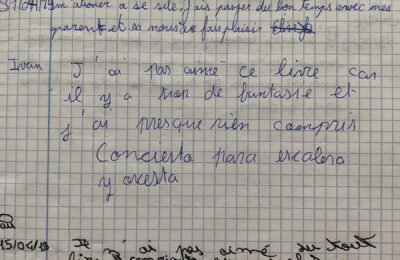 31/04/19 m'abonner a se site, fais passer du bon temps avec mes
parent et sa nous a fais plaisir
Ivan J'ai pas aimé ce livre car
il y a trop de fantasie et
j'ai presque rien compris
Concierto para escalera
y orcesta
15/04/19 Je n'ai pas aimé du tout